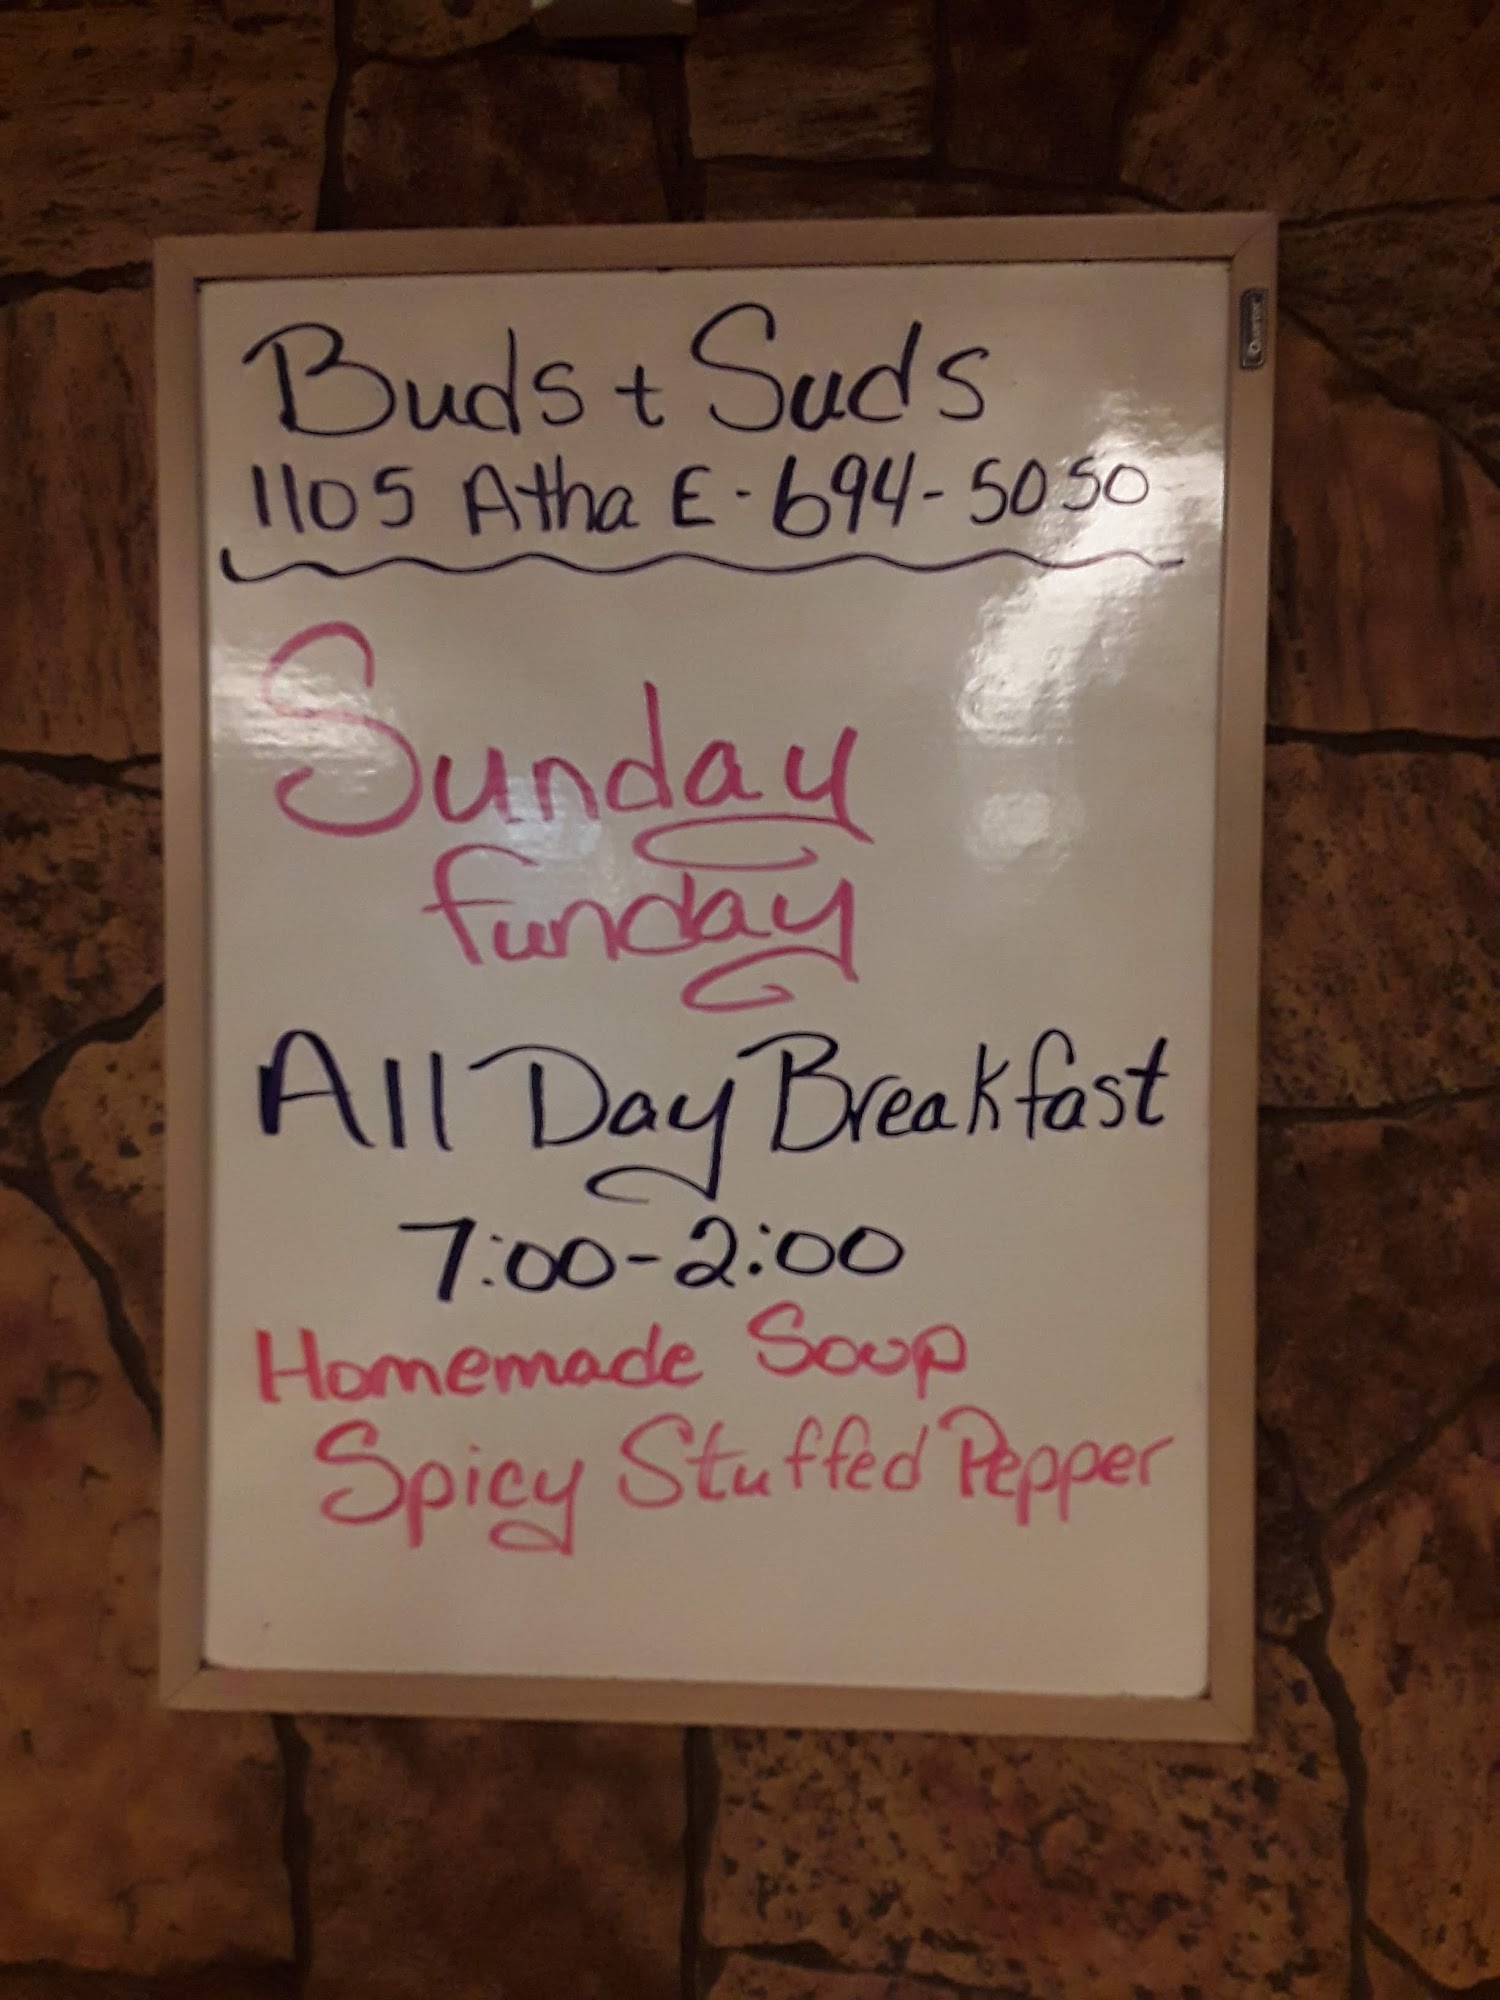 Buds + Suds
1105 Atha E - 694-5050
Quartet
Sunday
funday
All Day Breakfast
7:00-2:00
Homemade Soup
Spicy Stuffed Pepper